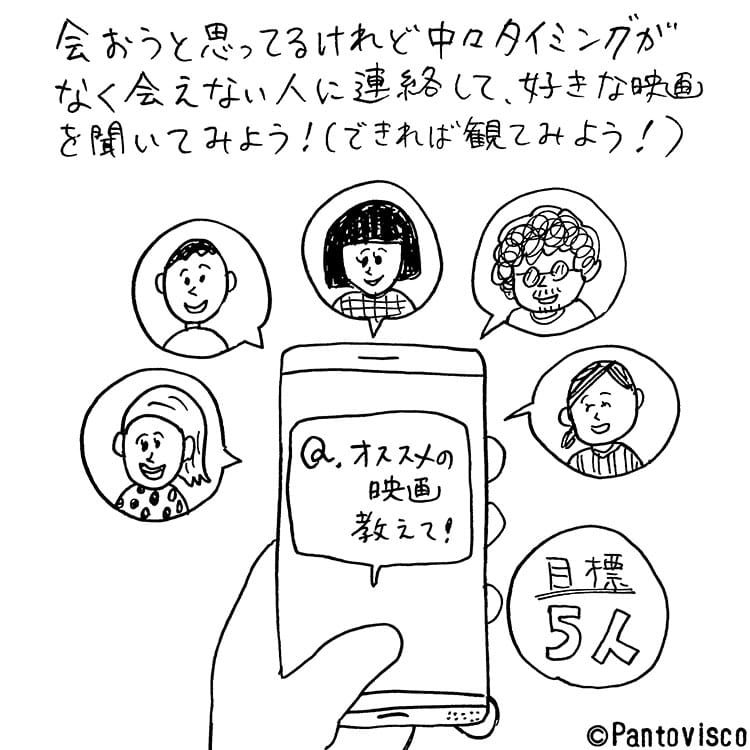 会おうと思ってるけれど中々タイミングが
なく会えない人に連絡して、好きな映画
を聞いてみよう!(できれば観てみよう!)
Q.オススメの
映画
教えて!
目標
5人
©Pantovisco